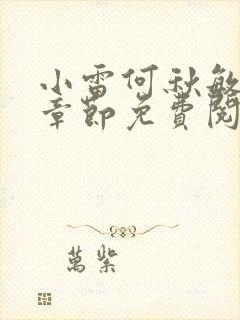 小雷何秋敏
章節免費閱
萬紫